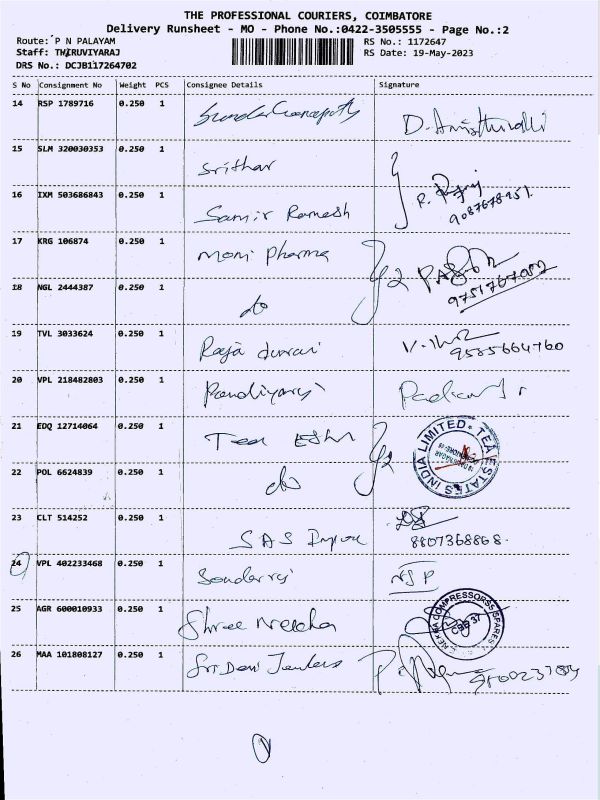 THE PROFESSIONAL COURIERS, COIMBATORE
Delivery Runsheet - MO - Phone No.:0422-3505555 - Page No.:2
Route: P N PALAYAM RS No.: 1172647
Staff: THIRUVIYARAJ RS Date: 19-May-2023
DRS No.: DCJB117264702
S No Consignment No Weight PCS Consignee Details Signature
14 RSP 1789716 0.250 1
15 SLM 320030353 0.250 1 Srithar
16 IXM 503686843 0.250 1 Samir Ramesh
17 KRG 106874 0.250 1 Moni Pharma
18 NGL 2444387 0.250 1 do
19 TVL 3033624 0.250 1 Raja 9585664760
20 VPL 218482803 0.250 1 Pandiyaraj
21 EDQ 12714064 0.250 1 Tea TEA ESTATES INDIA LIMITED
22 POL 6624839 0.250 1 do
23 CLT 514252 0.250 1 SAS 8807368868.
24 VPL 402233468 0.250 1 NSP
25 AGR 600010933 0.250 1 Shree COMPRESSORSS SPARES
26 MAA 101808127 0.250 1 Sri Devi